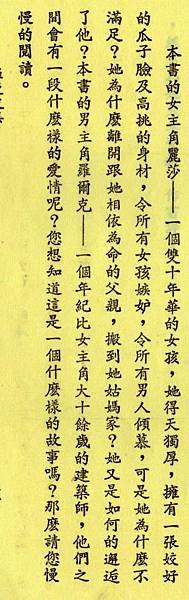 本書的女主角麗莎——一個雙十年華的女孩，她得天獨厚，擁有一張姣好
的瓜子臉及高挑的身材，令所有女孩嫉妒，令所有男人傾慕，可是她為什麼不
滿足？她為什麼離開跟她相依為命的父親，搬到她姑媽家？她又是如何的邂逅
了他？本書的男主角羅爾克——一個年紀比女主角大十餘歲的建築師，他們之
間會有一段什麼樣的愛情呢？您想知道這是一個什麼樣的故事嗎？那麼請您慢
慢的閱讀。